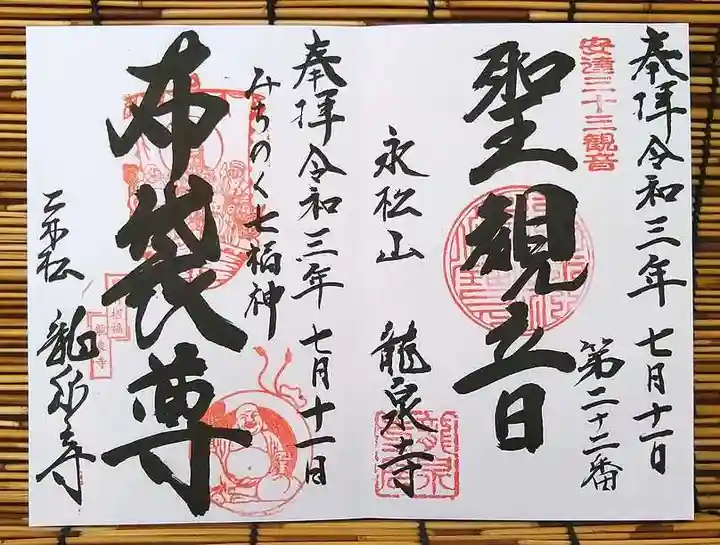 奉拝令和三年七月十一日
安達三十三観音
第二十二番
聖観音
永松山
龍泉寺
奉拝令和三年七月十一日
みちのく七福神
布袋尊
二本松
龍泉寺
招福
龍泉寺